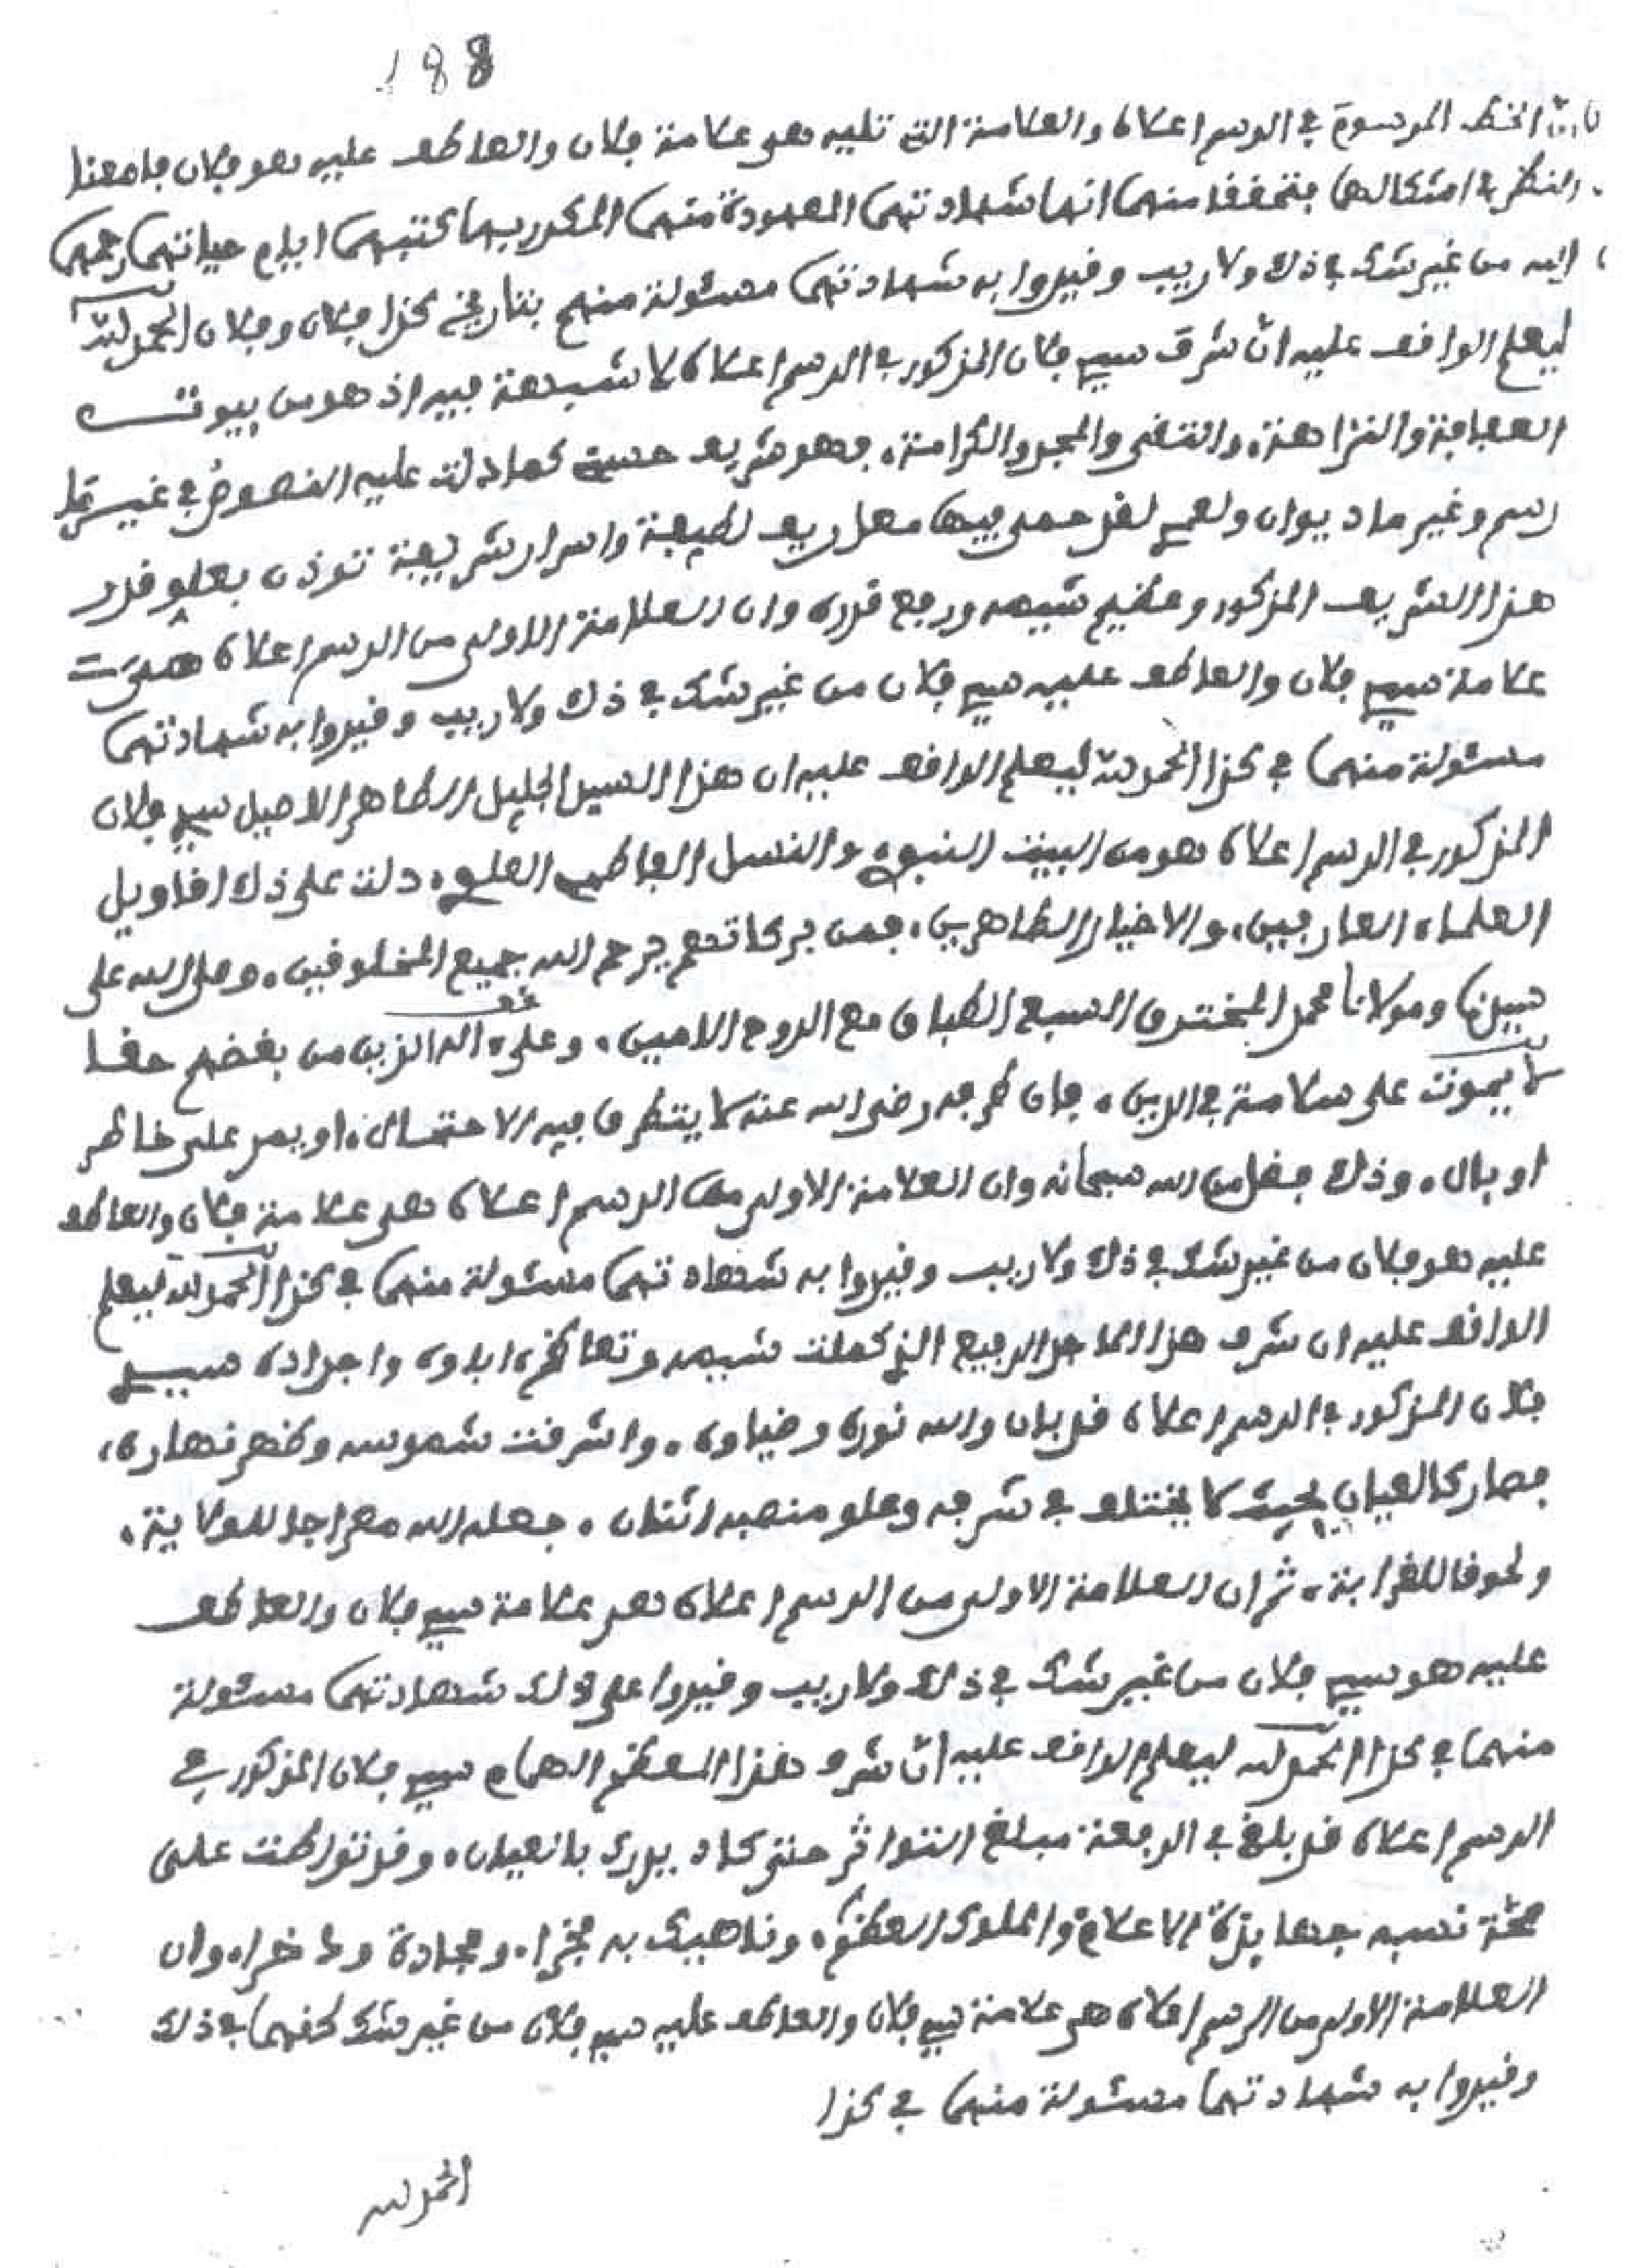 188
بان الخط الموسوم في الرسم اعلاه والعلامة التي تليه هي علامة فلان والعاطف عليه هو فلان فامعنا
النظر في اشكالها فتحققا منهما انها شهادتهما المعهودة منهما المذكورين ما كتبهما ايام حياتهما رحمهما
الله من غير شك في ذلك ولا ريب وقيدوا به شهادتهما مسئولة منهم بتاريخ كذا فلان وفلان الحمد لله
ليعلم الواقف عليه ان شرف سيدي فلان المذكور في الرسم اعلاه لا شبهة فيه اذ هو من بيوت
العفافة والنزاهة، والتقى والمجد والكرامة، فهو شريف حسيني كما دلت عليه النصوص في غير ما
رسم وغير ما ديوان ولعمري لقد حمدى فيها معاريف لطيفة واسرار شريفة تؤذن بعلو قدر
هذا الشريف المذكور وعظيم شيمه ورفع قدره وان العلامة الاولى من الرسم اعلاه هي
علامة سيدي فلان والعاطف عليه سيدي فلان من غير شك في ذلك ولا ريب وقيدوا به شهادتهما
مسئولة منهما في كذا الحمد لله ليعلم الواقف عليه ان هذا السيد الجليل الطاهر الاصيل سيدي فلان
المذكور في الرسم اعلاه هو من البيت النبوي والنسل الفاطمي العلي، دلت على ذلك اقاويل
العلماء العارفين، والاخيار الطاهرين، فمن بركاتهم يرحم الله جميع المخلوقين. وصلى الله على
سيدنا ومولانا محمد المخترق السبع الطباق مع الروح الامين، وعلى اله الذين من بغضهم حقا
لا يموت على سلامة في الدين، فان شرفه رضي الله عنه لا يتطرق فيه الاحتمال، او يمر على خاطر
او بال. وذلك بفضل من الله سبحانه وان العلامة الاولى من الرسم اعلاه هي علامة فلان والعاطف
عليه هو فلان من غير شك في ذلك ولا ريب وقيدوا به شهادتهما مسئولة منهما في كذا الحمد لله ليعلم
الواقف عليه ان شرف هذا الماجد الرفيع الذي كملت شيمه وتعاظم اباوه واجداده سيدي
فلان المذكور في الرسم اعلاه قد بان والله نوره وضياوه. واشرقت شموسه وظهر نهاره،
فصار كالعيان بحيث لا يختلف في شرفه وعلو منصبه اثنان. جعله الله معراجا للولاية،
ولحوقا للقرابة، ثم ان العلامة الاولى من الرسم اعلاه هي علامة سيدي فلان والعاطف
عليه هو سيدي فلان من غير شك في ذلك ولا ريب وقيدوا على ذلك شهادتهما مسئولة
منهما في كذا الحمد لله ليعلم الواقف عليه ان شرف هذا المعظم الهمام سيدي فلان المذكور في
الرسم اعلاه قد بلغ في الرفعة مبلغ التواثر حتى كاد يدرك بالعيان، وقد تواطت على
صحة نسبه جهابذة الاعلام والملوك العظام، وناهيك به فخرا، ومجادة وذخرا، وان
العلامة الاولى من الرسم اعلاه هي علامة سيدي فلان والعاطف عليه سيدي فلان من غير شك لحقهما في ذلك
وقيدوا به شهادتهما مسئولة منهما في كذا
الحمد لله